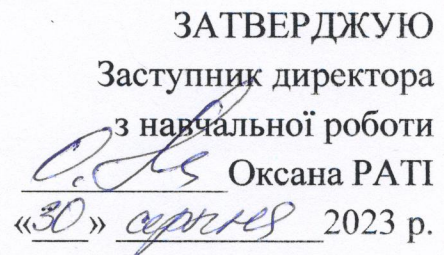 ЗАТВЕРДЖУЮ
Заступник директора
з навчальної роботи
Оксана РАТІ
«30» серпня 2023 р.